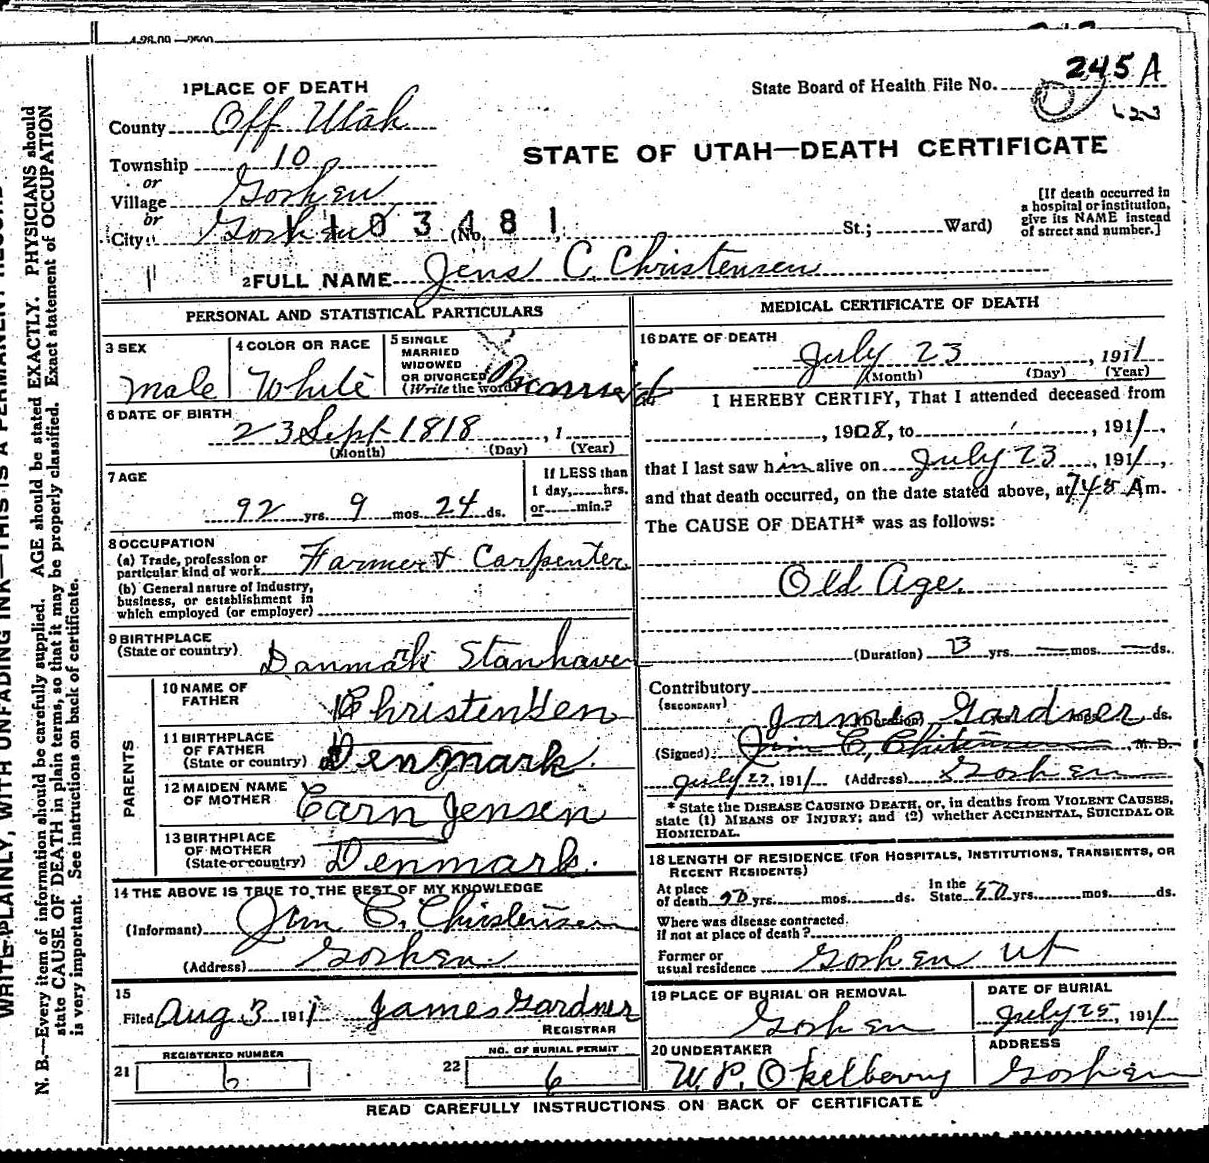 4-28-09—2500
State Board of Health File No. 245 A
1 PLACE OF DEATH
County Off Utah
Township 10
or
Village Goshen
or
City Goshen (No. St.; Ward)
1103481
STATE OF UTAH—DEATH CERTIFICATE
[If death occurred in
a hospital or institution,
give its NAME instead
of street and number.]
2 FULL NAME Jens C. Christensen
PERSONAL AND STATISTICAL PARTICULARS
3 SEX
Male
4 COLOR OR RACE
White
5 SINGLE
MARRIED
WIDOWED
OR DIVORCED
(Write the word)
6 DATE OF BIRTH
23 Sept 1818, 1
(Month) (Day) (Year)
7 AGE
92 yrs. 9 mos. 24 ds.
If LESS than
1 day, hrs.
or min.?
8 OCCUPATION
(a) Trade, profession or
particular kind of work Farmer & Carpenter
(b) General nature of Industry,
business, or establishment in
which employed (or employer)
9 BIRTHPLACE
(State or country) Danmark Stanhave
PARENTS
10 NAME OF
FATHER Christensen
11 BIRTHPLACE
OF FATHER
(State or country) Denmark.
12 MAIDEN NAME
OF MOTHER Carn Jensen
13 BIRTHPLACE
OF MOTHER
(State or country) Denmark.
14 THE ABOVE IS TRUE TO THE BEST OF MY KNOWLEDGE
(Informant) Jim C. Chirstensen
(Address) Goshen
15
Filed Aug 3 1911 James Gardner
REGISTRAR
REGISTERED NUMBER
21 6
NO. OF BURIAL PERMIT
22 6
MEDICAL CERTIFICATE OF DEATH
16 DATE OF DEATH
July 23, 1911
(Month) (Day) (Year)
I HEREBY CERTIFY, That I attended deceased from
, 1908, to , 1911,
that I last saw him alive on July 23, 1911,
and that death occurred, on the date stated above, at 745 A m.
The CAUSE OF DEATH* was as follows:
Old Age.
(Duration) 3 yrs. mos. ds.
Contributory
(SECONDARY)
(Duration) yrs. mos. ds.
James Gardner
(Signed) Jim C. Chitensen M. D.
July 27, 1911 (Address) Goshen
* State the DISEASE CAUSING DEATH, or, in deaths from VIOLENT CAUSES,
state (1) MEANS OF INJURY; and (2) whether ACCIDENTAL, SUICIDAL OR
HOMICIDAL.
18 LENGTH OF RESIDENCE (FOR HOSPITALS, INSTITUTIONS, TRANSIENTS, OR
RECENT RESIDENTS)
At place
of death 50 yrs. mos. ds. In the
State 50 yrs. mos. ds.
Where was disease contracted.
if not at place of death?
Former or
usual residence Goshen Ut
19 PLACE OF BURIAL OR REMOVAL
Goshen
DATE OF BURIAL
July 25, 1911
20 UNDERTAKER
W. P. Okelberry
ADDRESS
Goshen
READ CAREFULLY INSTRUCTIONS ON BACK OF CERTIFICATE
WRITE PLAINLY, WITH UNFADING INK—THIS IS A PERMANENT RECORD
N. B.—Every item of information should be carefully supplied. AGE should be stated EXACTLY. PHYSICIANS should
state CAUSE OF DEATH in plain terms, so that it may be properly classified. Exact statement of OCCUPATION
is very important. See instructions on back of certificate.